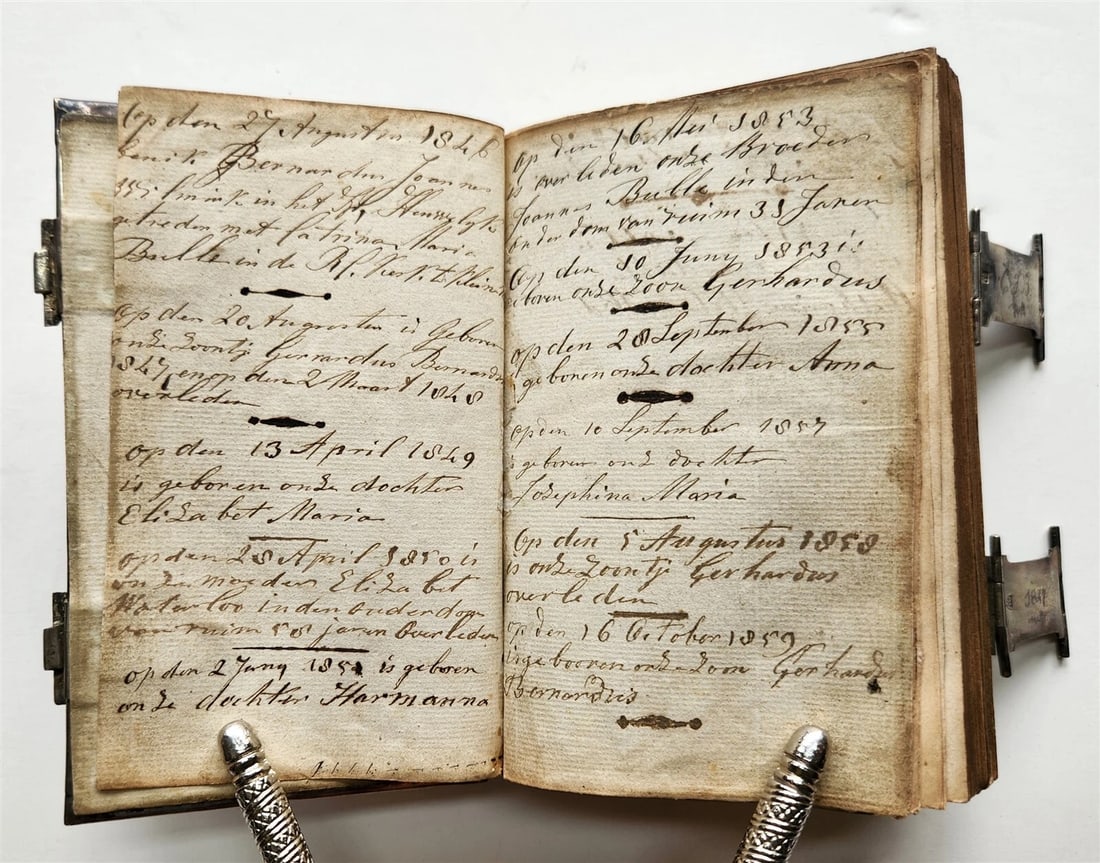 Op den 27 Augustus 1846
ben ik Bernardus Joannes
in het H. Huwelyk
getreden met Catrina Maria
Bulle in de RC. Kerk te
Op den 20 Augustus is Geboren
onze zoontje Gerrardus Bernardus
1847 en op den 2 Maart 1848
overleden
op den 13 April 1849
is geboren onze dochter
Elizabet Maria
op den 28 April 1850 is
onze moeder Elizabet
Waterloo in den ouderdom
van ruim 58 jaren Overleden
op den 2 Juny 1851 is geboren
onze dochter Harmanna
Op den 16 Mei 1853
is overleden onze Broeder
Joannes Bulle in den
ouderdom van ruim 31 Jaren
Op den 10 Juny 1853 is
geboren onze zoon Gerhardus
op den 28 September 1855
is geboren onze dochter Anna
op den 10 September 1857
is geboren onz dochter
Josephina Maria
Op den 5 Augustus 1858
is onze zoontje Gerhardus
overleden
op den 16 October 1859
is gebooren onze zoon Gerhardus
Bernardus